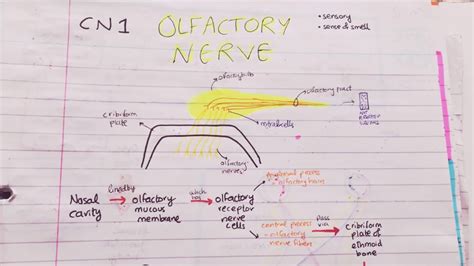 CN1 OLFACTORY NERVE
• sensory
• sense of smell
olfactory bulb
olfactory tract
cribriform plate
mitral cells
olfactory nerves
Nasal cavity
lined by
olfactory mucous membrane
which has
olfactory receptor nerve cells
peripheral process
- olfactory hairs
central process
- olfactory nerve fibers
pass via
cribriform plate of ethmoid bone